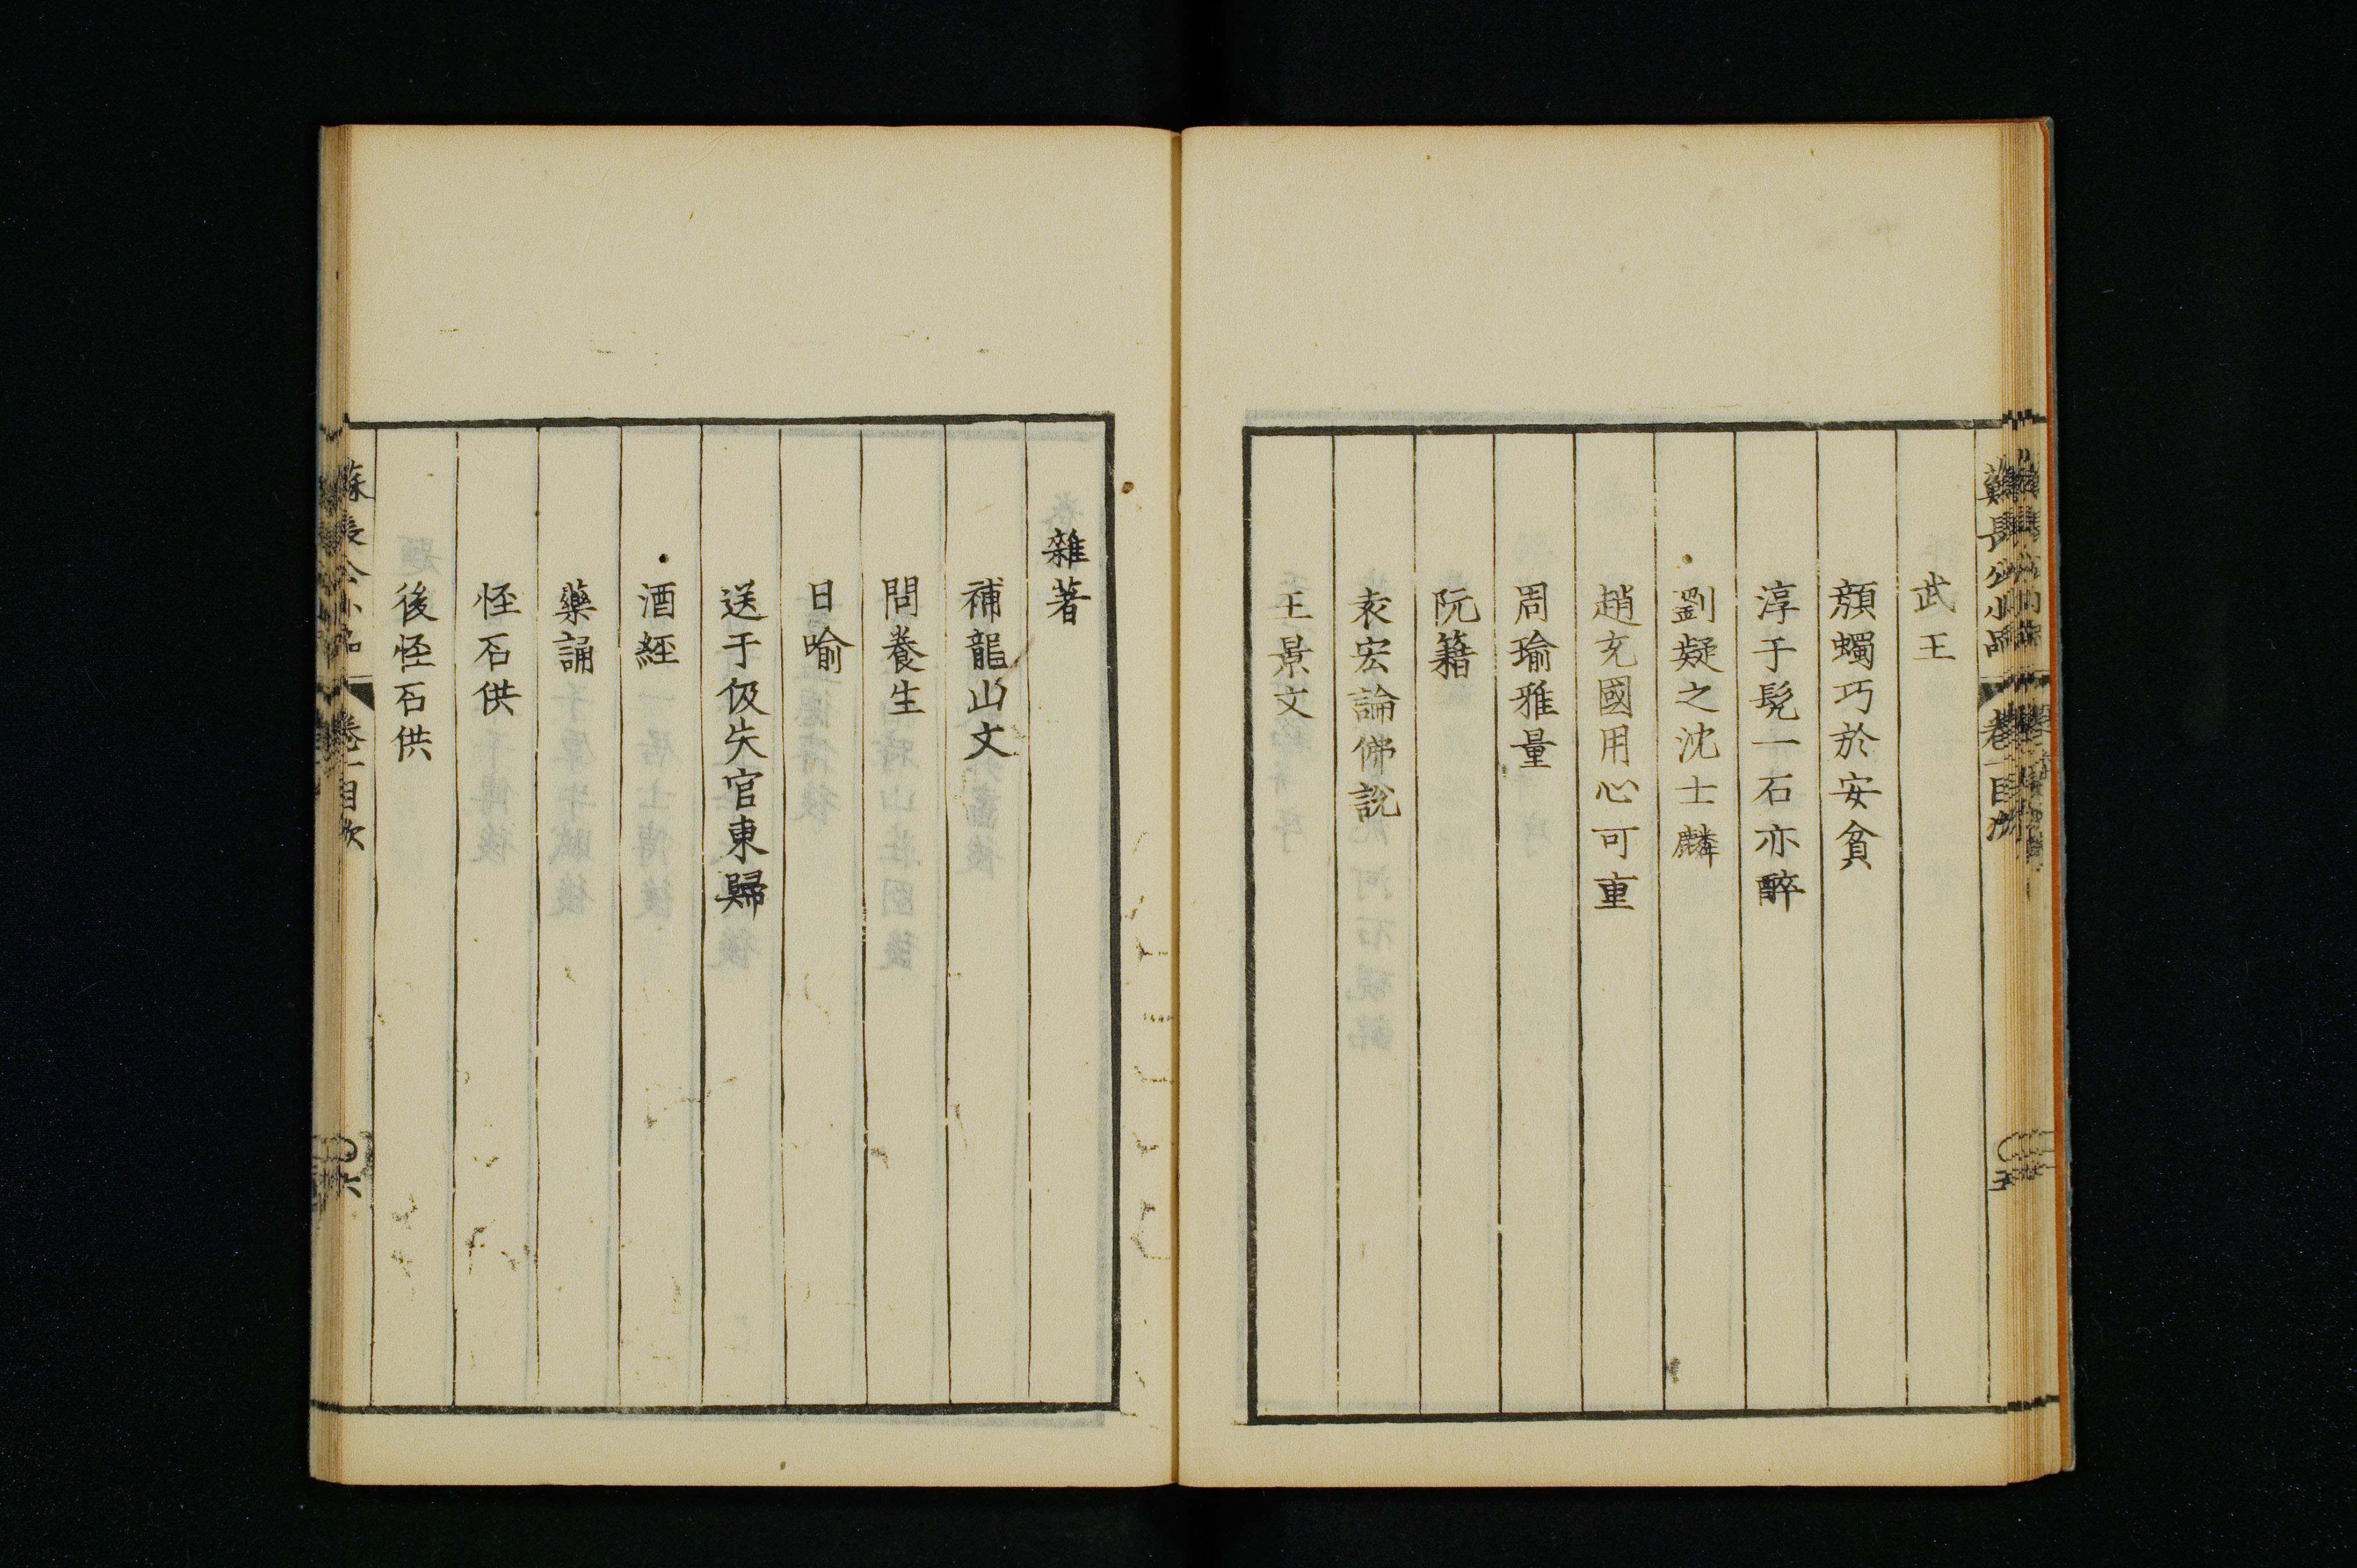 蘇長公小品 卷一目次 五
武王
顏蠋巧於安貧
淳于髡一石亦醉
劉凝之沈士麟
趙充國用心可重
周瑜雅量
阮籍
袁宏論佛說
王景文
雜著
補龍山文
問養生
日喻
送于伋失官東歸
酒經
藥誦
怪石供
後怪石供
蘇長公小品 卷一目次 六